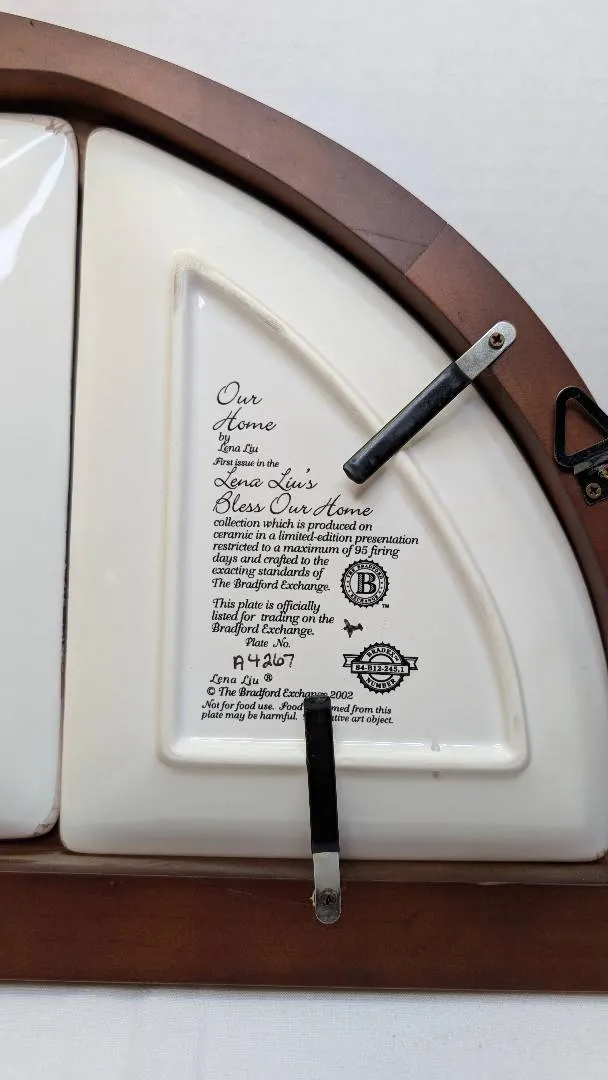 Our
Home
by
Lena Liu
First issue in the
Lena Liu's
Bless Our Home
collection which is produced on
ceramic in a limited-edition presentation
restricted to a maximum of 95 firing
days and crafted to the
exacting standards of
The Bradford Exchange.
THE BRADFORD
B
EXCHANGE
TM
This plate is officially
listed for trading on the
Bradford Exchange.
Plate No.
A4267
BRADEX
84-B12-245.1
NUMBER
Lena Liu ®
© The Bradford Exchange 2002
Not for food use. Food med from this
plate may be harmful. ative art object.